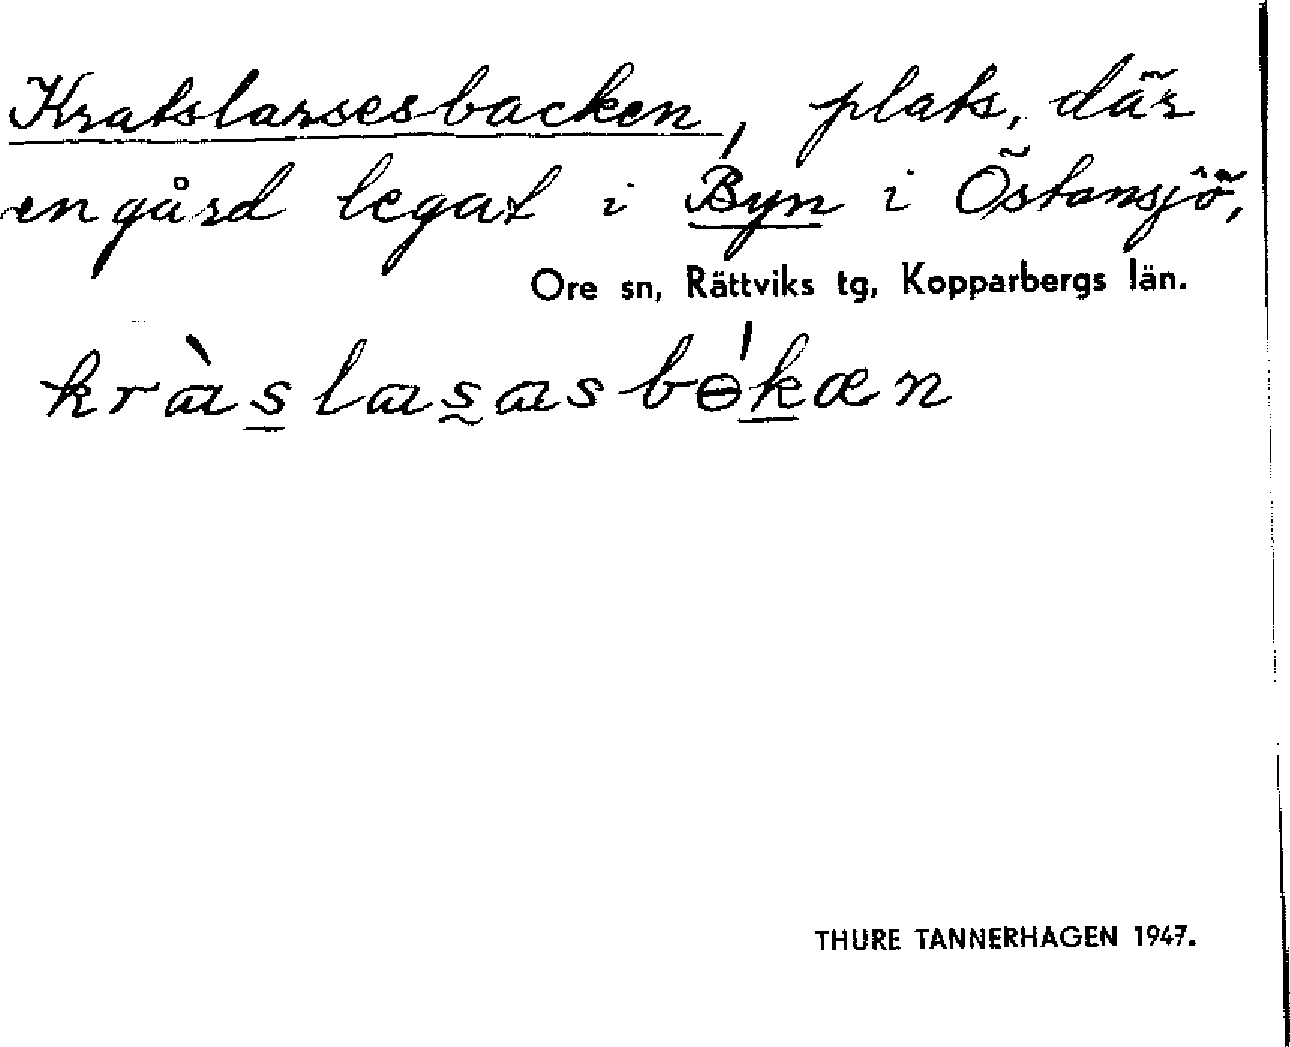 Kratslarsesbacken, plats, där
en gård legat i Byn i Östansjö,
Ore sn, Rättviks tg, Kopparbergs län.
kràs̲las̰asbɵ́k̲æn
THURE TANNERHAGEN 1947.